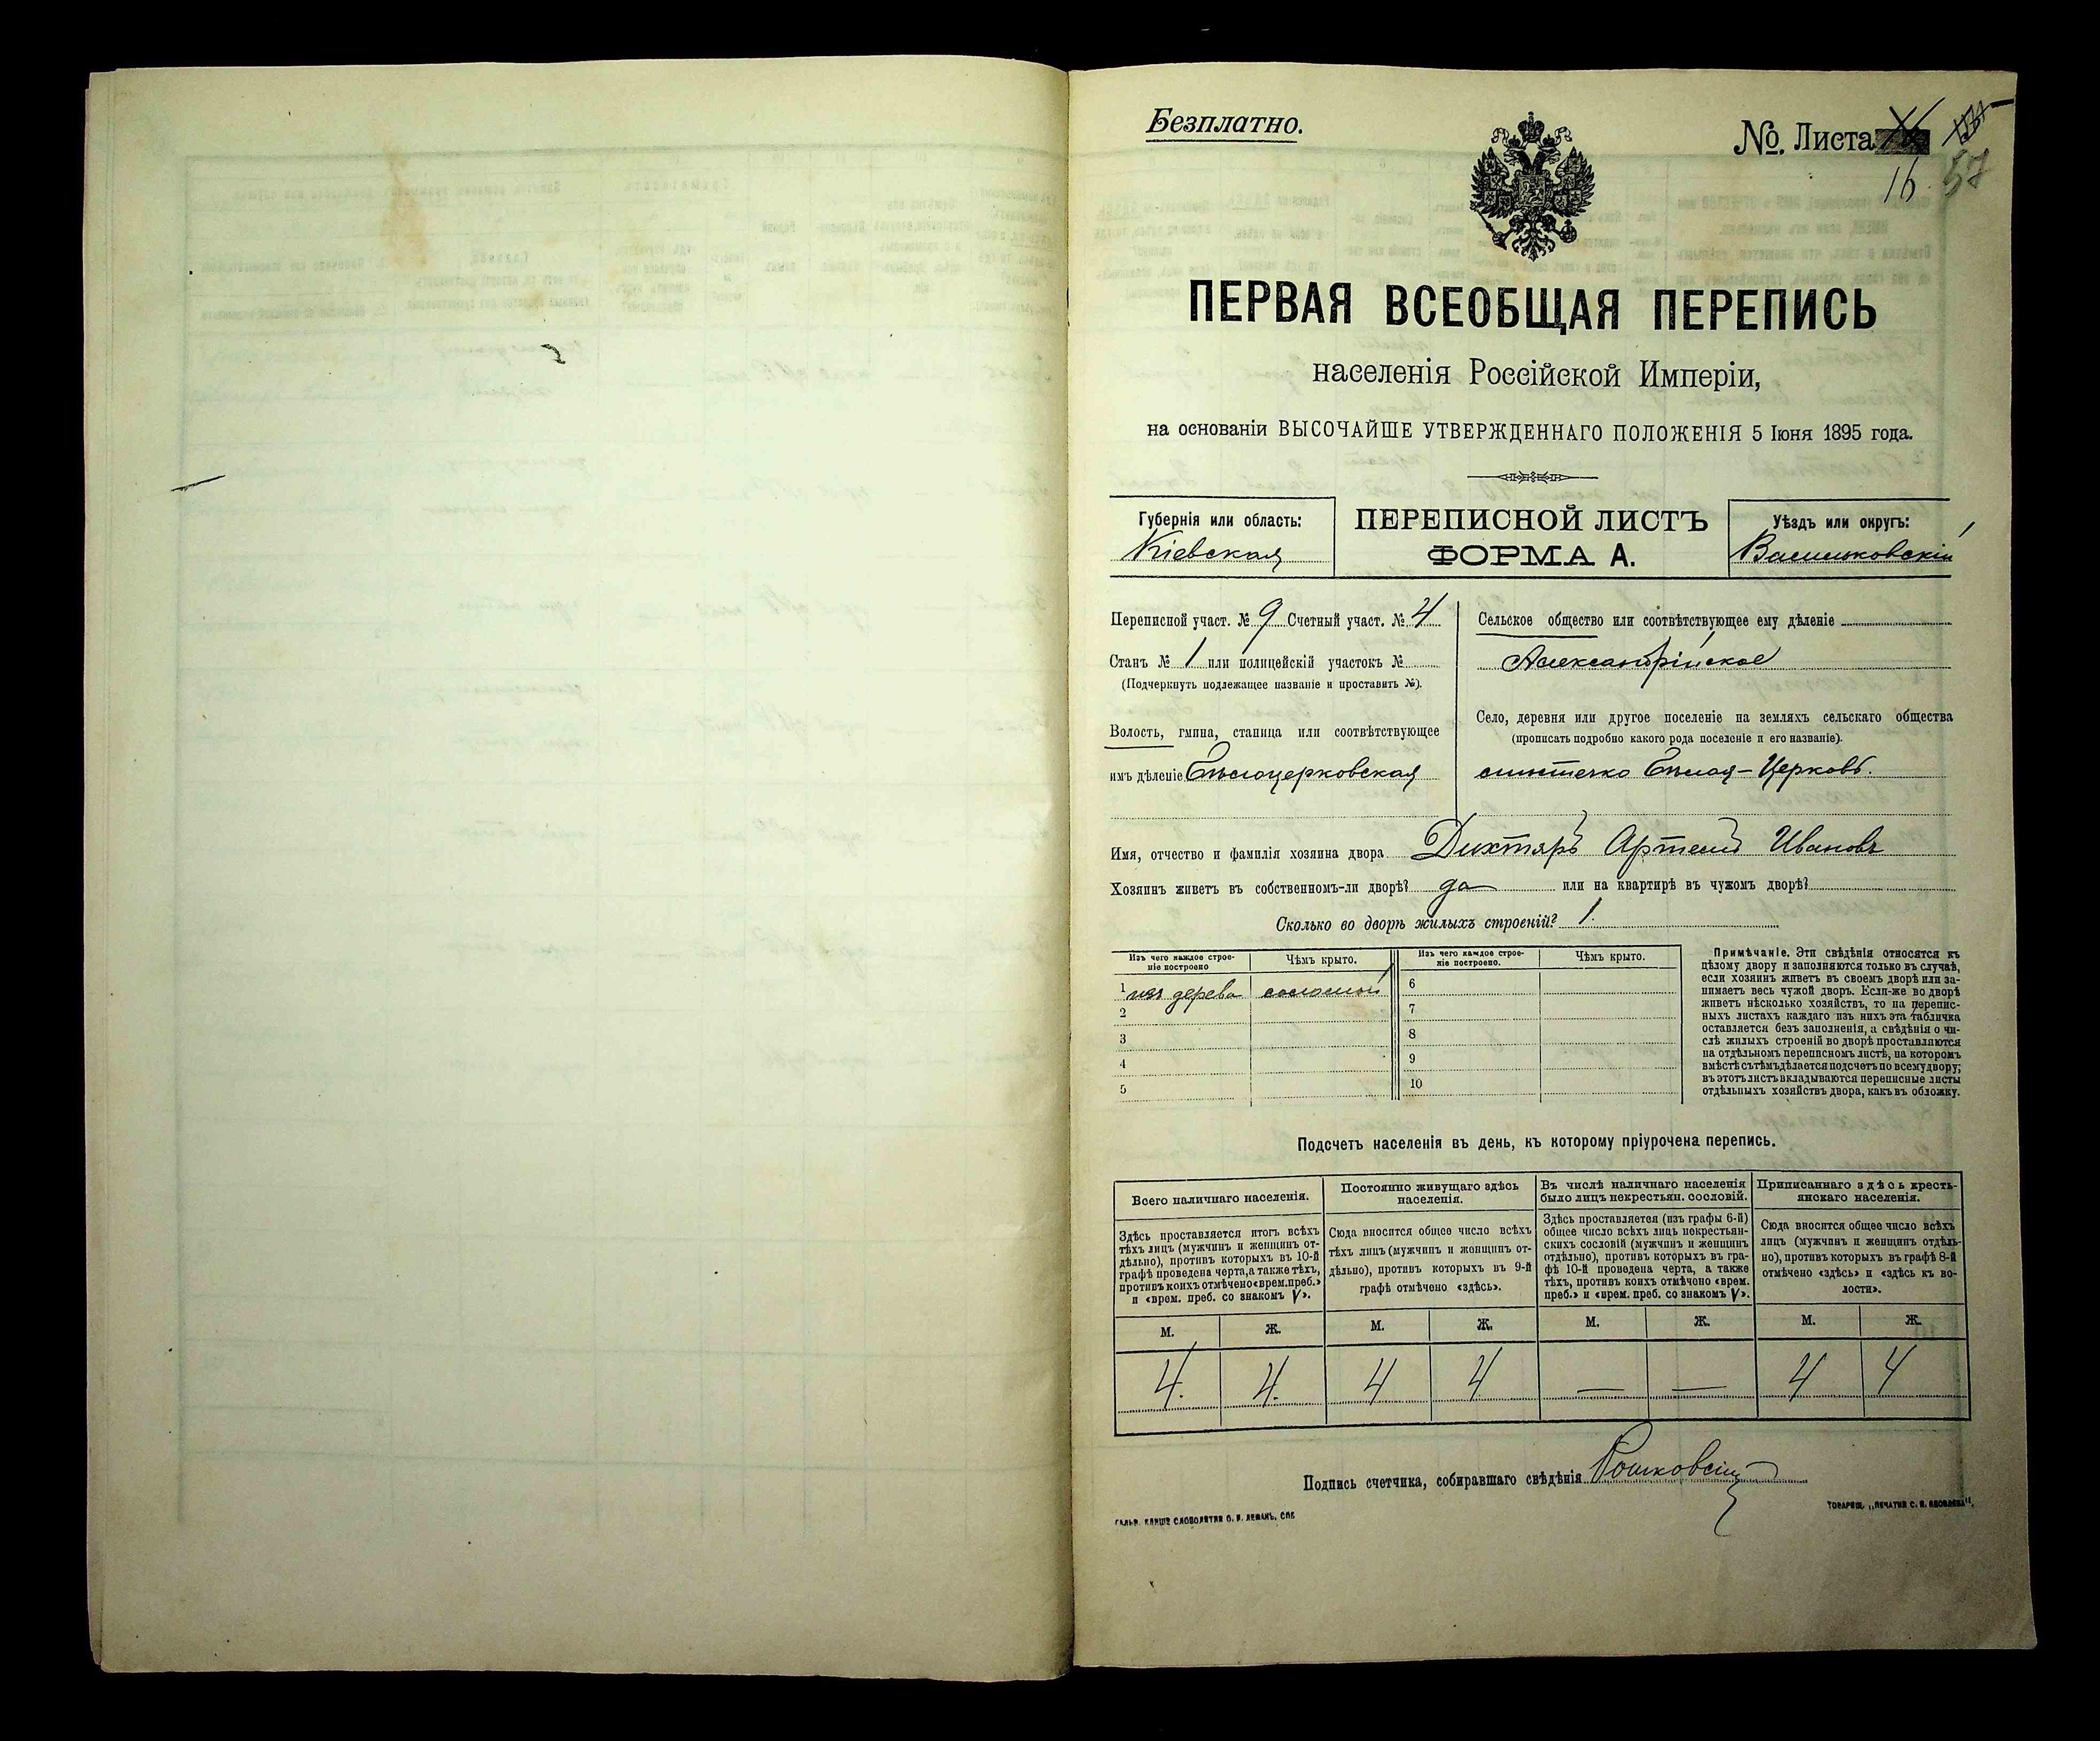 Безплатно.
№. Листа
16 57
ПЕРВАЯ ВСЕОБЩАЯ ПЕРЕПИСЬ
населенія Россійской Имперіи,
на основаніи ВЫСОЧАЙШЕ УТВЕРЖДЕННАГО ПОЛОЖЕНІЯ 5 Іюня 1895 года.
Губернія или область:
Кіевская
ПЕРЕПИСНОЙ ЛИСТЪ
ФОРМА А.
Уѣздъ или округъ:
Васильковскій
Переписной участ. № 9 Счетный участ. № 4
Станъ № 1 или полицейскій участокъ №
(Подчеркнуть подлежащее названіе и проставить №).
Волость, гмина, станица или соотвѣтствующее
имъ дѣленіе Бѣлоцерковская
Сельское общество или соотвѣтствующее ему дѣленіе
Александрійское
Село, деревня или другое поселеніе на земляхъ сельскаго общества
(прописать подробно какого рода поселеніе и его названіе).
мѣстечко Бѣлая-Церковь.
Имя, отчество и фамилія хозяина двора Дихтяръ Артемъ Ивановъ
Хозяинъ живетъ въ собственномъ-ли дворѣ? да или на квартирѣ въ чужомъ дворѣ?
Сколько во дворѣ жилыхъ строеній? 1.
Изъ чего каждое строе-
ніе построено
Чѣмъ крыто.
Изъ чего каждое строе-
ніе построено.
Чѣмъ крыто.
1 изъ дерева соломой
2
3
4
5
6
7
8
9
10
Примѣчаніе. Эти свѣдѣнія относятся къ
цѣлому двору и заполняются только въ случаѣ,
если хозяинъ живетъ въ своемъ дворѣ или за-
нимаетъ весь чужой дворъ. Если-же во дворѣ
живетъ нѣсколько хозяйствъ, то на перепис-
ныхъ листахъ каждаго изъ нихъ эта табличка
оставляется безъ заполненія, а свѣдѣнія о чи-
слѣ жилыхъ строеній во дворѣ проставляются
на отдѣльномъ переписномъ листѣ, на которомъ
вмѣстѣ съ тѣмъ дѣлается подсчетъ по всему двору;
въ этотъ листъ вкладываются переписные листы
отдѣльныхъ хозяйствъ двора, какъ въ обложку.
Подсчетъ населенія въ день, къ которому пріурочена перепись.
Всего наличнаго населенія.
Здѣсь проставляется итогъ всѣхъ
тѣхъ лицъ (мужчинъ и женщинъ от-
дѣльно), противъ которыхъ въ 10-й
графѣ проведена черта, а также тѣхъ,
противъ коихъ отмѣчено «врем. преб.»
и «врем. преб. со знакомъ V».
Постоянно живущаго здѣсь
населенія.
Сюда вносится общее число всѣхъ
тѣхъ лицъ (мужчинъ и женщинъ от-
дѣльно), противъ которыхъ въ 9-й
графѣ отмѣчено «здѣсь».
Въ числѣ наличнаго населенія
было лицъ некрестьян. сословій.
Здѣсь проставляется (изъ графы 6-й)
общее число всѣхъ лицъ некрестьян-
скихъ сословій (мужчинъ и женщинъ
отдѣльно), противъ которыхъ въ гра-
фѣ 10-й проведена черта, а также
тѣхъ, противъ коихъ отмѣчено «врем.
преб.» и «врем. преб. со знакомъ V».
Приписаннаго здѣсь кресть-
янскаго населенія.
Сюда вносится общее число всѣхъ
лицъ (мужчинъ и женщинъ отдѣль-
но), противъ которыхъ въ графѣ 8-й
отмѣчено «здѣсь» и «здѣсь къ во-
лости».
М. Ж. М. Ж. М. Ж. М. Ж.
4. 4. 4 4 — — 4 4
Подпись счетчика, собиравшаго свѣдѣнія
ГАЛЬВ. КЛИШЕ СЛОВОЛИТНИ О. И. ЛЕМАНЪ, СПБ
ТОВАРИЩ. „ПЕЧАТНЯ С. П. ЯКОВЛЕВА“.